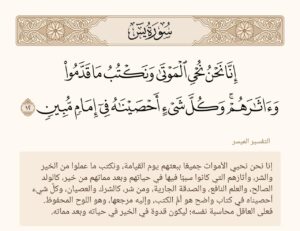 سُورَةُ يسٓ
إِنَّا نَحْنُ نُحْيِ ٱلْمَوْتَىٰ وَنَكْتُبُ مَا قَدَّمُوا۟
وَءَاثَٰرَهُمْ ۚ وَكُلَّ شَىْءٍ أَحْصَيْنَٰهُ فِىٓ إِمَامٍ مُّبِينٍ ١٢
التفسير الميسر
إنا نحن نحيي الأموات جميعًا ببعثهم يوم القيامة، ونكتب ما عملوا من الخير
والشر، وآثارهم التي كانوا سببًا فيها في حياتهم وبعد مماتهم من خير، كالولد
الصالح، والعلم النافع، والصدقة الجارية، ومن شر، كالشرك والعصيان، وكلَّ شيء
أحصيناه في كتاب واضح هو أمُّ الكتب، وإليه مرجعها، وهو اللوح المحفوظ.
فعلى العاقل محاسبة نفسه؛ ليكون قدوة في الخير في حياته وبعد مماته.